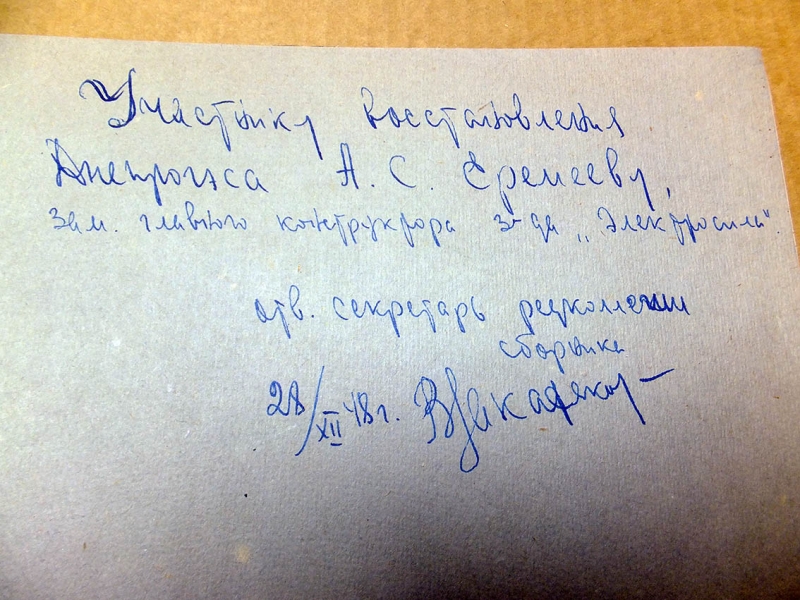 Участнику восстановления
Днепрогэса А. С. Еремееву,
зам. главного конструктора з-да „Электросила".
отв. секретарь редколлегии
сборника
28/XII 48 г.